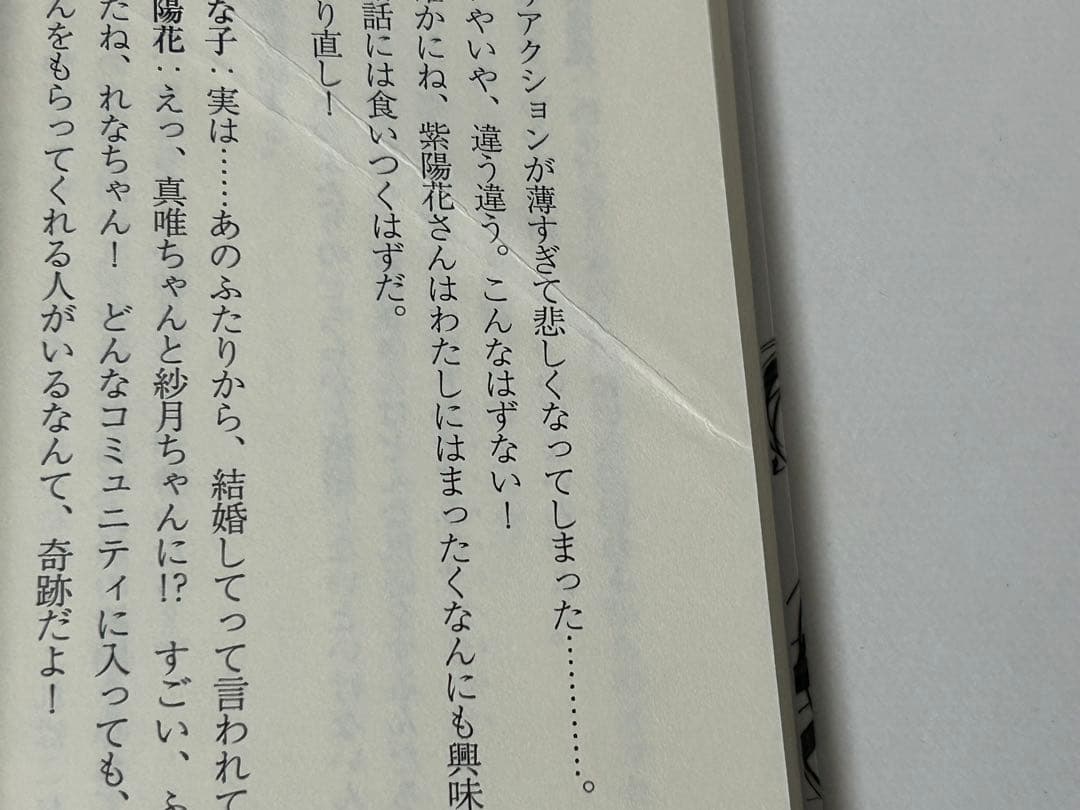 アクションが薄すぎて悲しくなってしまった…………。
やいや、違う違う。こんなはずない！
かにね、紫陽花さんはわたしにはまったくなんにも興味
話には食いつくはずだ。
り直し！
な子：実は……あのふたりから、結婚してって言われて
陽花：えっ、真唯ちゃんと紗月ちゃんに!?　すごい、ふ
たね、れなちゃん！　どんなコミュニティに入っても、
んをもらってくれる人がいるなんて、奇跡だよ！